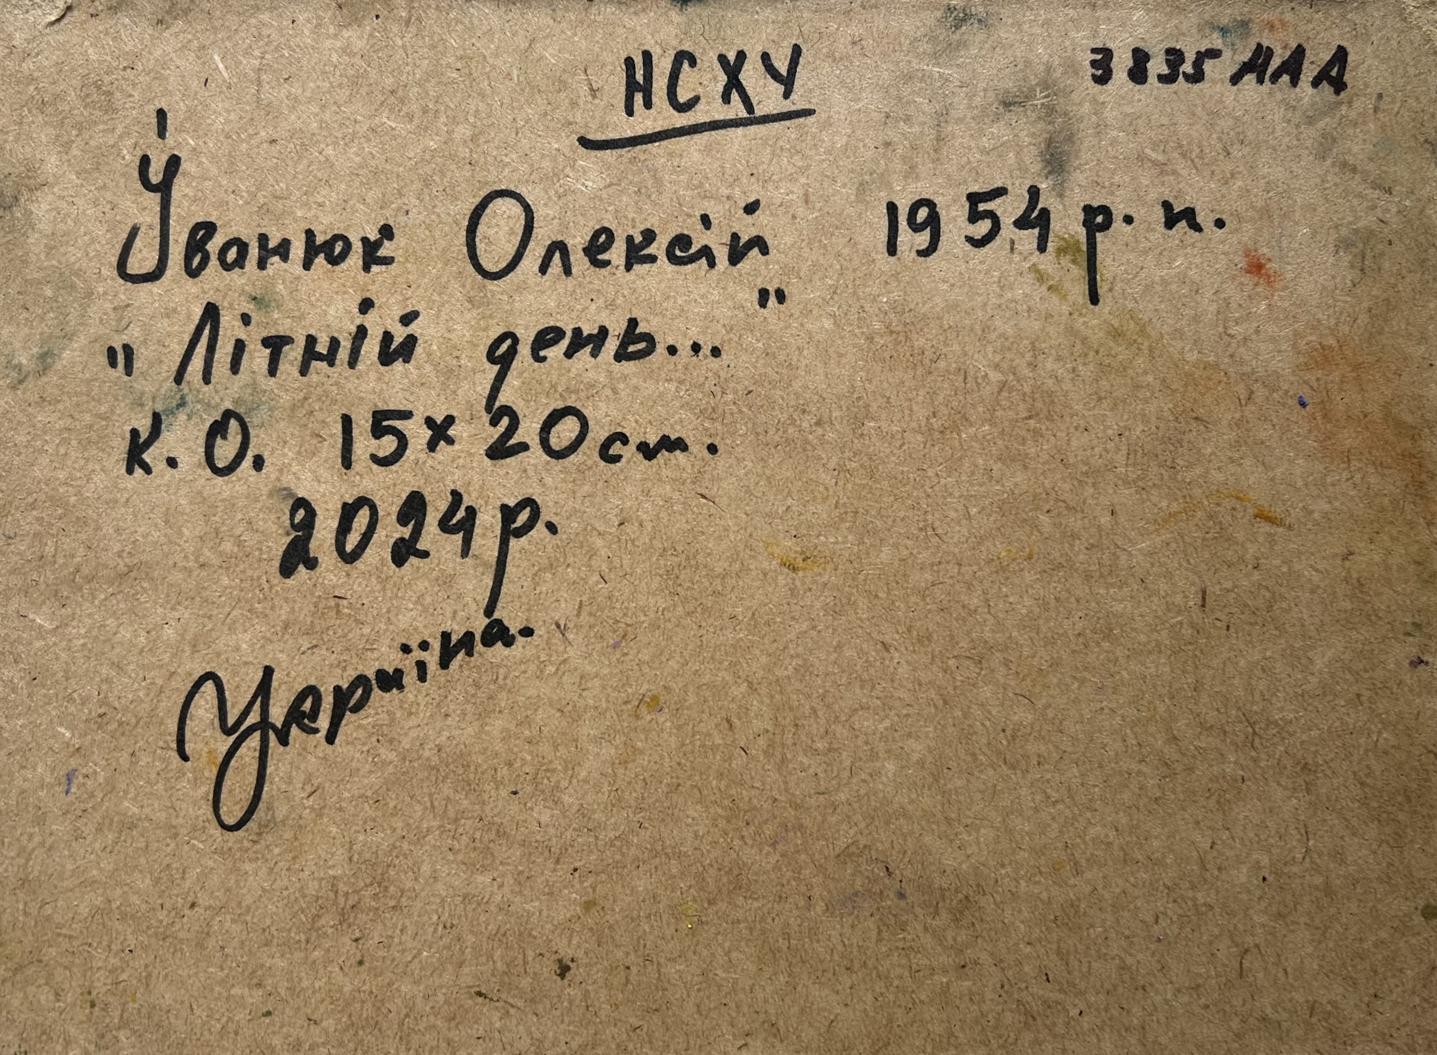 НСХУ
3835 НАА
Іванюк Олексій 1954 р. н.
"Літній день..."
К.О. 15×20 см.
2024 р.
Україна.